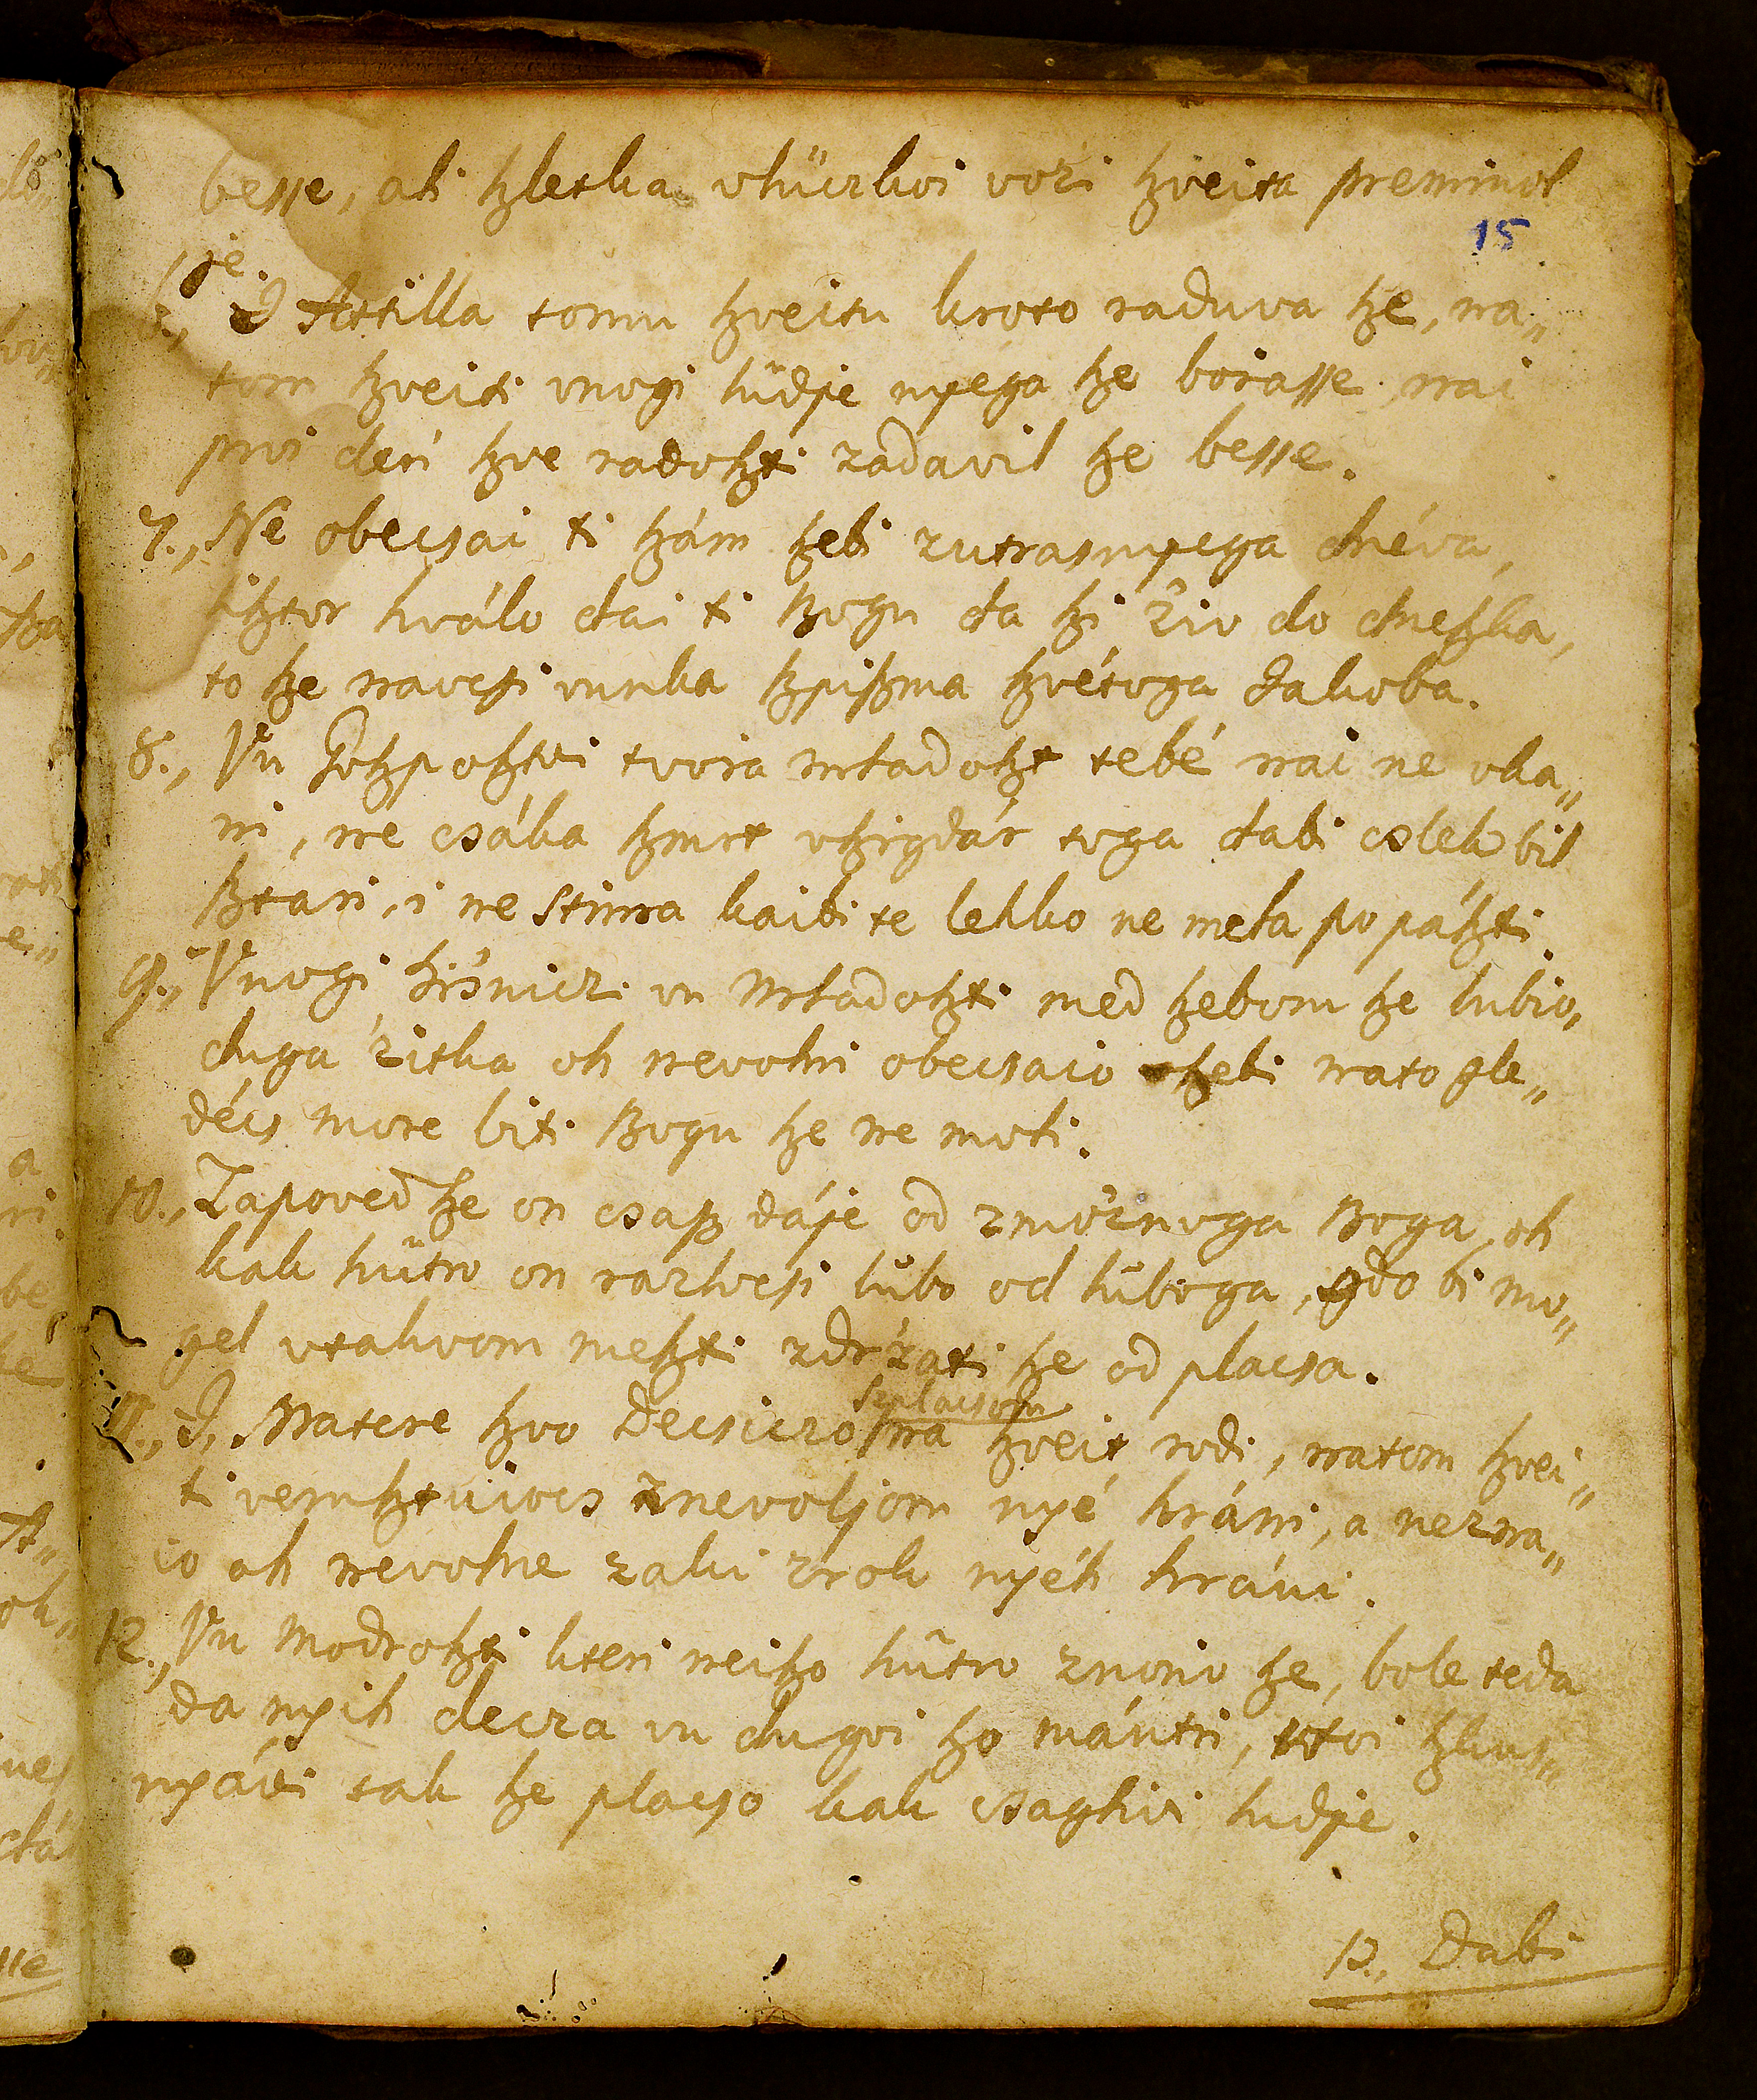 besse, ali szletka vküczkoi vöri szveita preminol
15
je.
6., I Attilla tomu szveitu kroto raduva sze, na„
tom szveiti vnogi lüdje nyega sze bojasse, nai
prvi den szve radoszti zadavil sze besse.
7., Ne obecsai ti szám szebi zutrasnyega dnéva,
lisztor hválo dai ti Bogu da szi 'ziv do dneszka,
to sze navcsi vunka szpiszma szvétoga Jakoba.
8., Vu Goszposztvi tvoia mladoszt tebé nai ne vka„
ni, ne csáka szmrt vszigdár toga dabi cslek bil
sztari, i ne stima kaibi te lehko ne mela popászti.
9., Vnogi hi'sniczi vu mladoszti med szebom sze lubio,
duga 'zitka oh nevolni obecsaio szebi nato gle„
décs more biti Bogu sze ne moli.
10., Zapoved sze on csasz dáje od zmo'znoga Boga, oh
kak hütro on razlocsi lübo od lüboga, gdo bi mo„
gel vtakvom meszti zdr'zati sze od placsa.
11., I, Matere szvo Decsiczo
seplacsom
na szveit rodi, natom szvei„
ti vernsztuiocs znevoljom nyé hráni, a nezna„
io oh nevolne zakvi zrok nyéh hráni.
12., Vu modroszti kteri neiszo hütro znono sze, bole teda
da nyih decza vu dugoi szo mántri,
nyávi tak sze placso kak csaghivi ludje.
13., Dabi